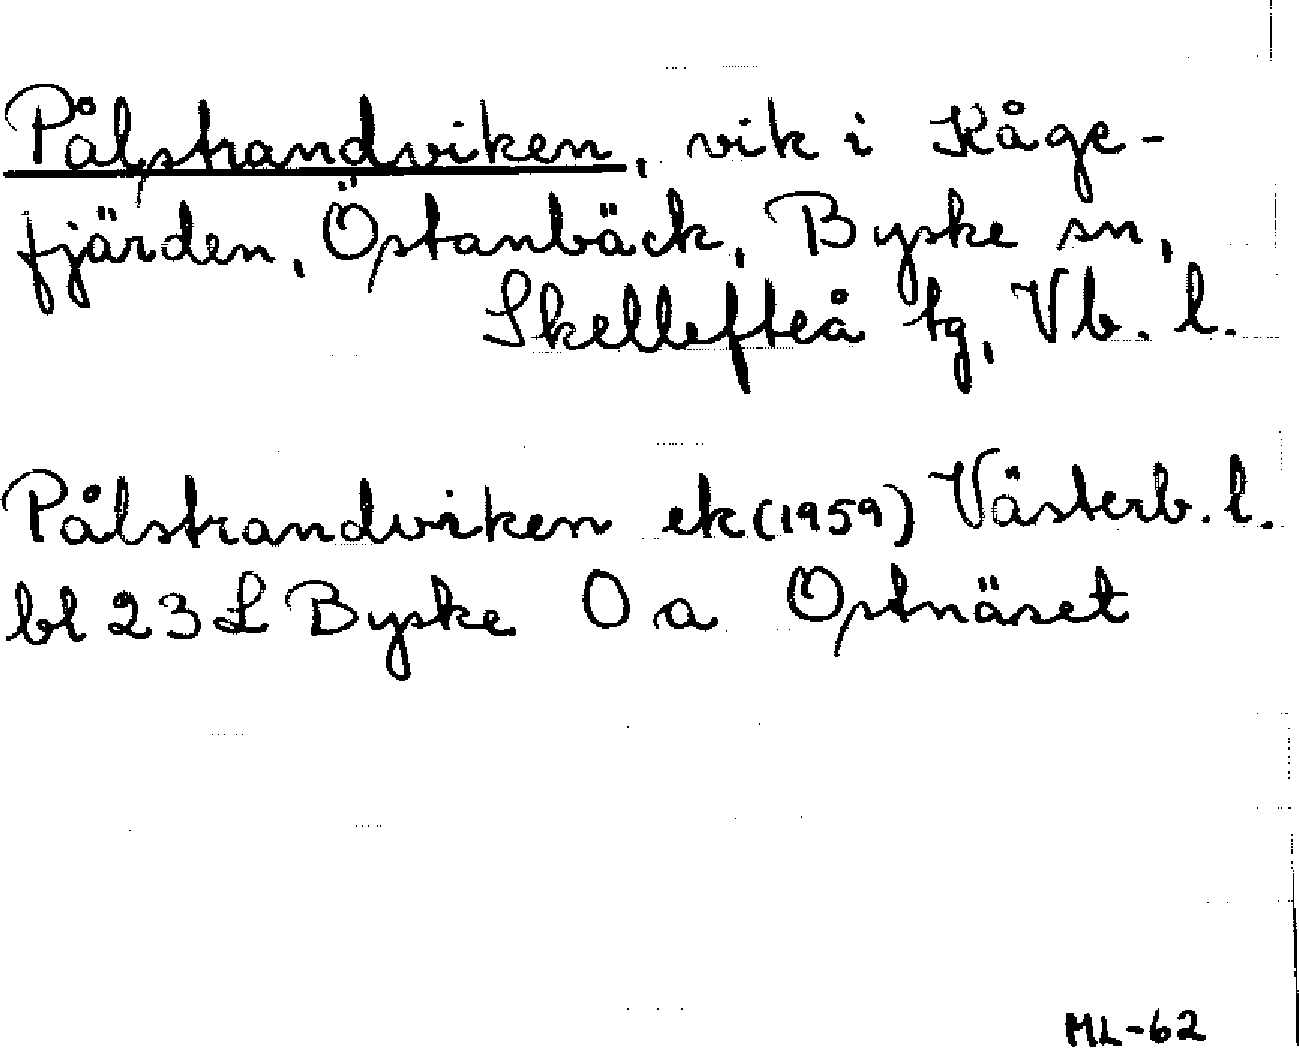 Pålstrandviken, vik i Kåge-
fjärden, Östanbäck, Byske sn,
Skellefteå tg, Vb. l.
Pålstrandviken ek (1959) Västerb. l.
bl 23 L Byske 0 a Ostnäset
ML-62